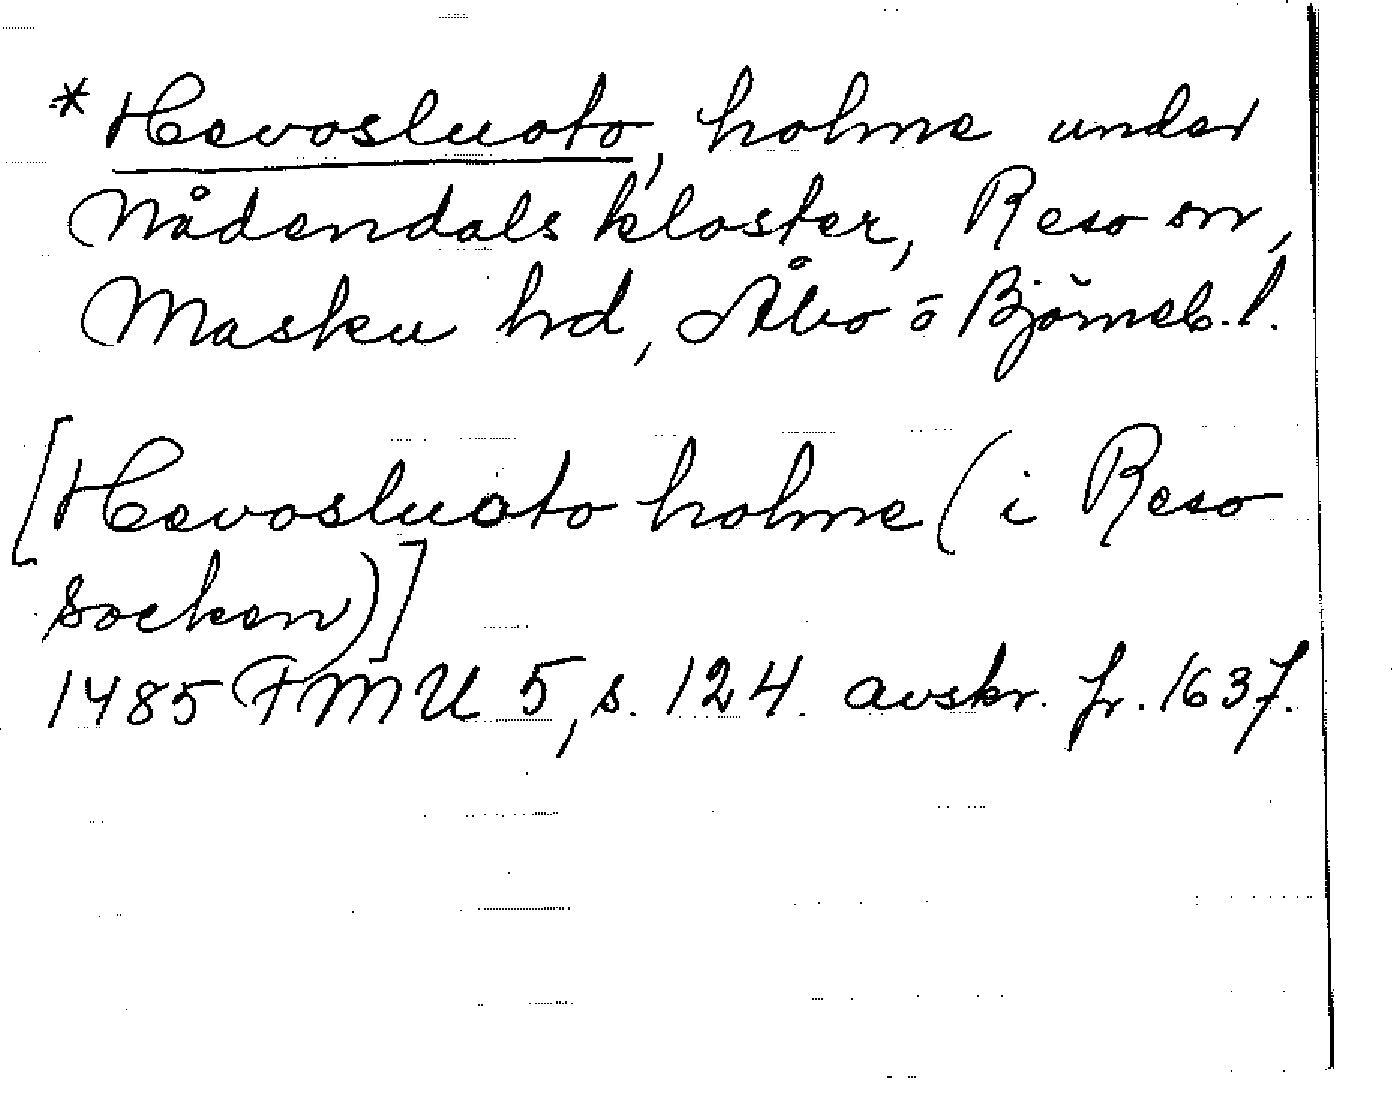 *Hevosluoto, holme under
Nådendals kloster, Reso sn,
Masku hd, Åbo o Björneb. l.
[Hevosluoto holme (i Reso
socken)]
1485 FMU 5, s. 124. avskr. fr. 1637.